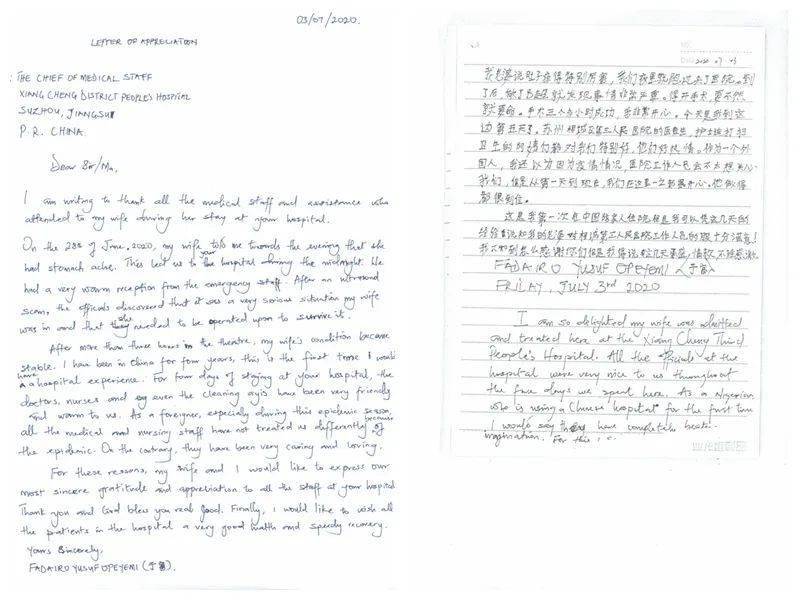 03/07/2020.
LETTER OF APPRECIATION
THE CHIEF OF MEDICAL STAFF
XIANG CHENG DISTRICT PEOPLE'S HOSPITAL
SUZHOU, JIANGSU
P.R. CHINA.
Dear Sir/Ma,
I am writing to thank all the medical staff and assistance who
attended to my wife during her stay at your hospital.
On the 28th of June, 2020, my wife told me towards the evening that she
had stomach ache. This led us to your hospital during the midnight. We
had a very warm reception from the emergency staff. After an ultrasound
scan, the officials discovered that it was a very serious situation my wife
was in and that she needed to be operated upon to survive it.
After more than three hours in the theatre, my wife's condition became
stable. I have been in China for four years, this is the first time I would
have a hospital experience. For four days of staying at your hospital, the
doctors, nurses and even the cleaning ayis have been very friendly
and warm to us. As a foreigner, especially during this epidemic season,
all the medical and nursing staff have not treated us differently because of
the epidemic. On the contrary, they have been very caring and loving.
For these reasons, my wife and I would like to express our
most sincere gratitude and appreciation to all the staff at your hospital
Thank you and God bless you real good. Finally, I would like to wish all
the patients in the hospital a very good health and speedy recovery.
Yours Sincerely,
FADAIRO YUSUF OPEYEMI (于富).
2020 07 03
我老婆说肚子疼得特别厉害，我们夜里就跑过去了医院。到
了后，做了B超就发现事情非常严重。得开手术，要不然
要命。手术三个多小时成功，我非常开心。今天是我到这
边第五天了。苏州相城区第三人民医院的医生，护士
对我们特别好，他们好热情。作为一个外
国人，我还以为因为疫情情况，医院工作人员会不太想关心
我们，但是从第一天到现在，我们在这里一直都很开心。他们做得
都很到位。
这是我第一次在中国
经验 相城第三人民医院工作人员

FADAIRO YUSUF OPEYEMI (于富)
FRILAY, JULY 3rd 2020
I am so delighted my wife was admitted
and treated here at the Xiang Cheng Third
People's Hospital. All the officials at the
hospital were very nice to us throughout
the five days we spent here. As a Nigerian
who is using a Chinese hospital for the first time
I would say they have completely beat
imagination. For this